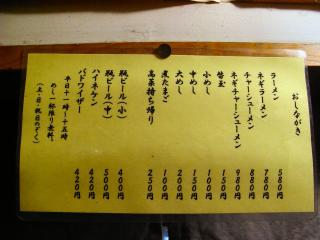 おしながき
ラーメン 580円
ネギラーメン 780円
チャーシューメン 880円
ネギチャーシューメン 980円
替玉 150円
小めし 100円
中めし 150円
大めし 200円
煮たまご 100円
高菜持ち帰り 250円
瓶ビール(小) 400円
瓶ビール(中) 500円
ハイネケン 420円
バドワイザー 420円
平日十一時~十五時
めし一杯限り無料。
(土・日・祝日のぞく)